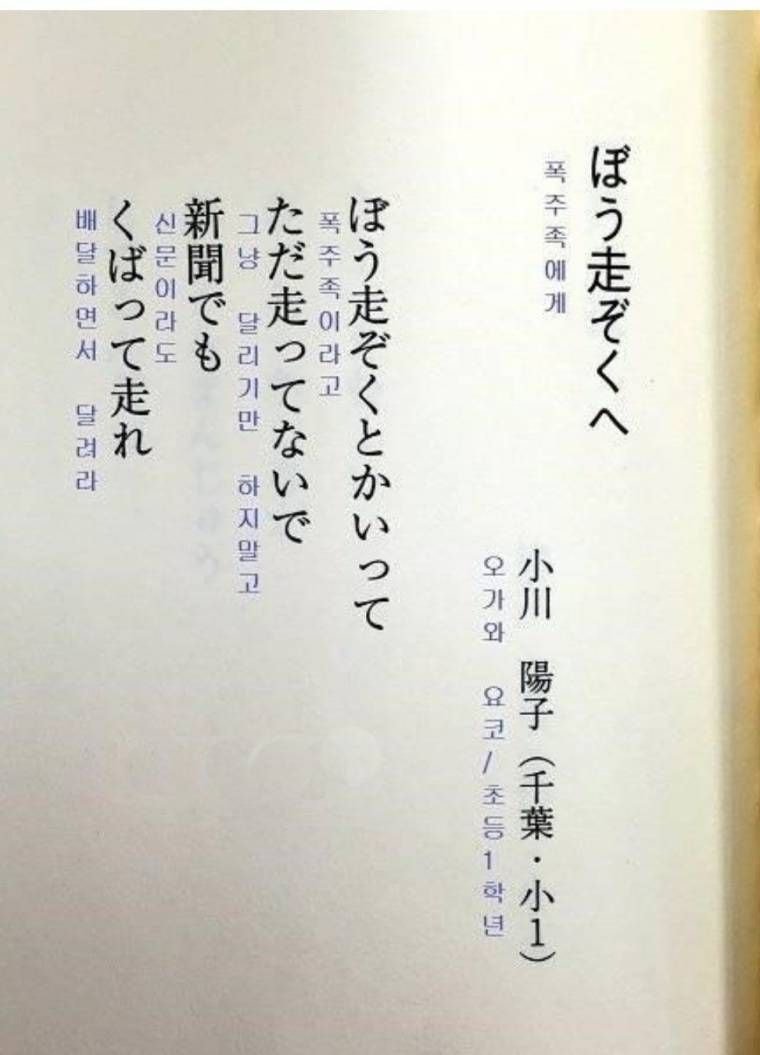 ぼう走ぞくへ
폭주족에게
小川　陽子（千葉・小1）
오가와 요코/초등1학년
ぼう走ぞくとかいって
폭주족이라고
ただ走ってないで
그냥 달리기만 하지말고
新聞でも
신문이라도
くばって走れ
배달하면서 달려라